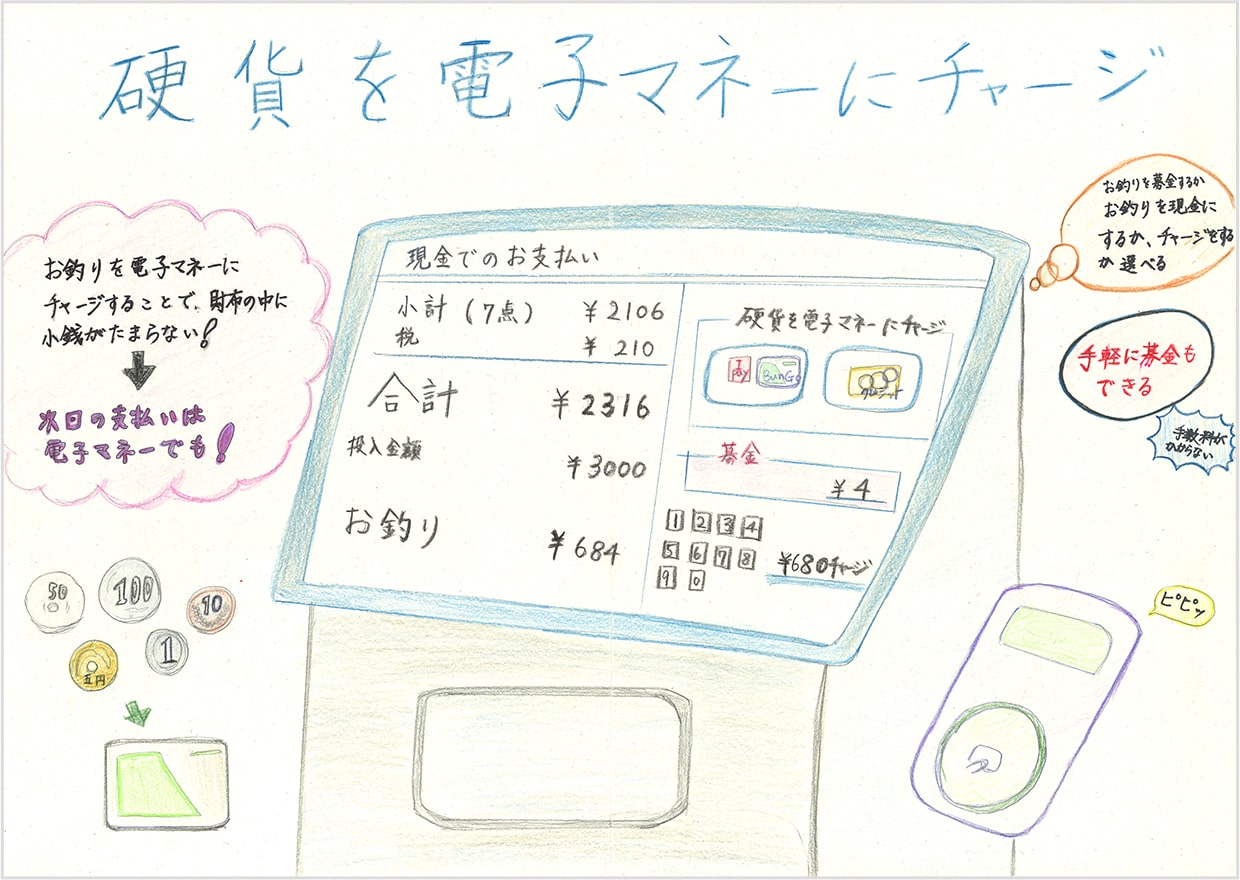 硬貨を電子マネーにチャージ
お釣りを電子マネーに
チャージすることで、財布の中に
小銭がたまらない!
次回の支払いは
電子マネーでも!
現金でのお支払い
小計(7点) ¥2106
税 ¥ 210
合計 ¥2316
投入金額 ¥3000
お釣り ¥684
硬貨を電子マネーにチャージ
Pay
BunGo
クレジット
募金
¥4
1 2 3 4
5 6 7 8
9 0
¥680チャージ
お釣りを募金するか
お釣りを現金に
するか、チャージをする
か選べる
手軽に募金も
できる
手数料が
かからない
ピピッ
50
100
10
1
五円